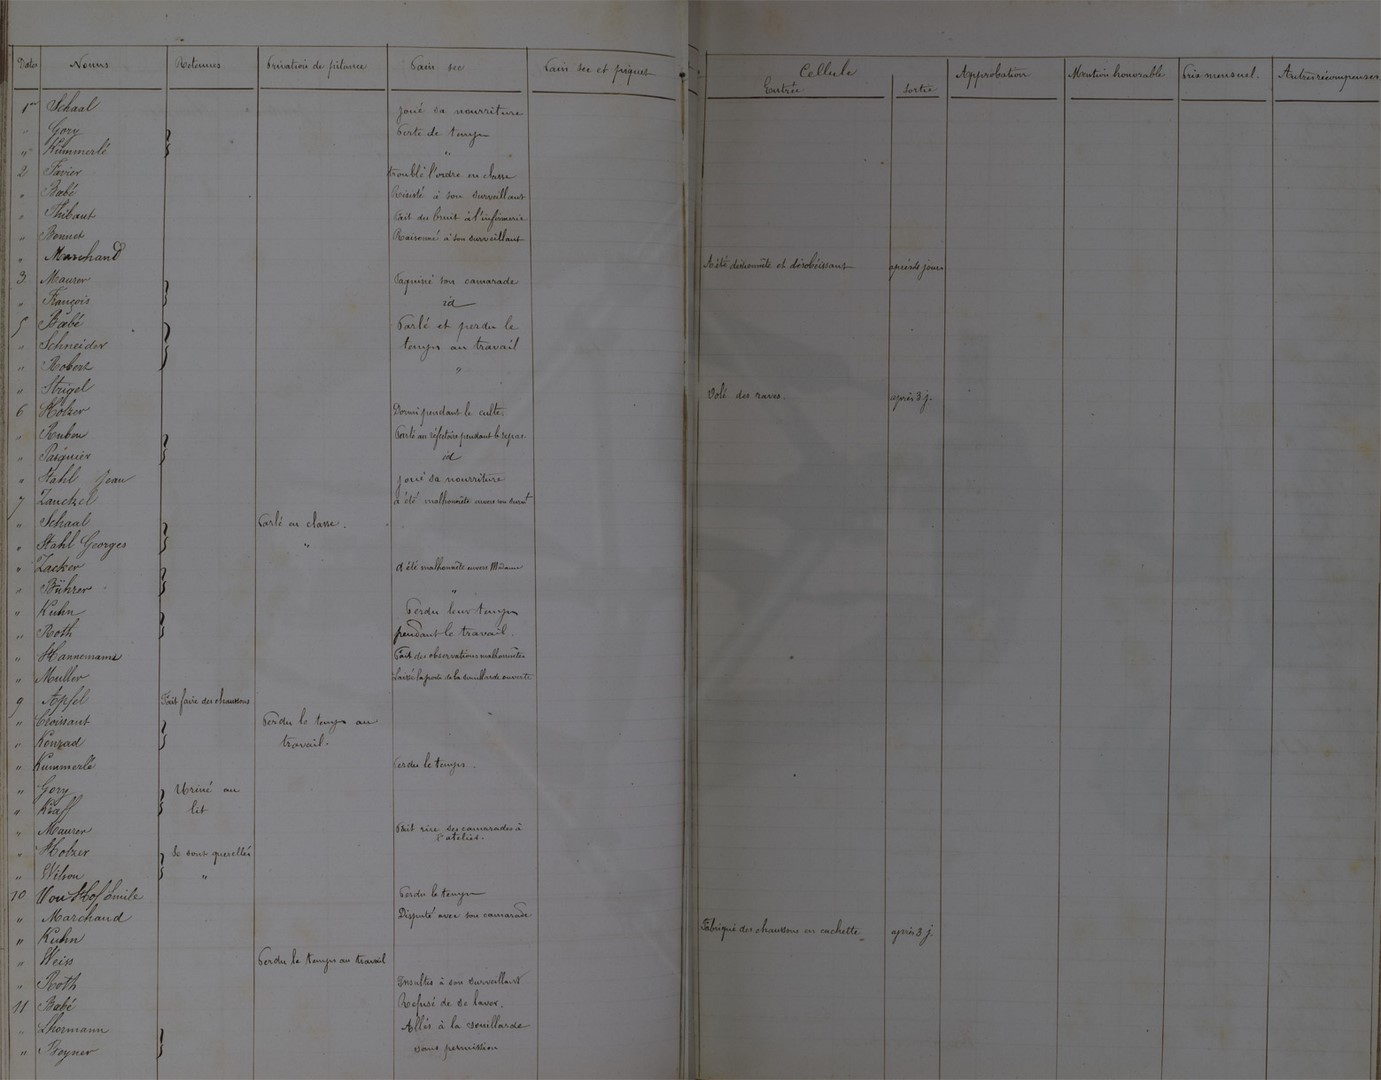 Dates Noms Retenues Privation de pitance Pain sec Pain sec et piquet Cellule Approbation Mention honorable Prix mensuel. Autres récompenses
Entrée Sortie
1er Schaal joué sa nourriture
" Gory Perte de temps
" Kümmerlé "
2 Favier troublé l'ordre en classe
" Bœbé Résisté à son surveillant
" Thibaut Fait du bruit à l'infirmerie
" Bonnet Raisonné à son surveillant
" Marchand A été déshonnête et désobéissant après 4 jours
3 Maurer Taquiné son camarade
" François id
5 Bœbé Parlé et perdu le
" Schneider temps au travail
" Robert "
" Strigel Volé des raves. après 3 j.
6 Holzer Dormi pendant le culte.
" Ruben Parlé au réfectoire pendant le repas.
" Pasquier id
" Stahl Jean joué sa nourriture
7 Zanckel a été malhonnête envers son survt
" Schaal Parlé en classe.
" Stahl Georges "
" Zaeker A été malhonnête envers
" Bührer "
" Kuhn Perdu leur temps
" Roth pendant le travail.
" Hannemann Fait des observations malhonnêtes
" Muller Laissé la porte de la souillarde ouverte
9 Apfel Fait faire des chaussons
" Croissant Perdu le temps au
" Konrad travail.
" Kummerlé Perdu le temps.
" Gory Uriné au
" Kraff lit
" Maurer Fait rire ses camarades à
l'atelier.
" Holzer Se sont querellés
" Wilson "
10 Von Hof Emile Perdu le temps
" Marchand Disputé avec son camarade
" Kuhn Fabriqué des chaussons en cachette après 3 j.
" Weiss Perdu le temps au travail
" Roth Insultes à son surveillant
11 Babé Refusé de se laver.
" Lhormann Allés à la souillarde
" Beyner sans permission